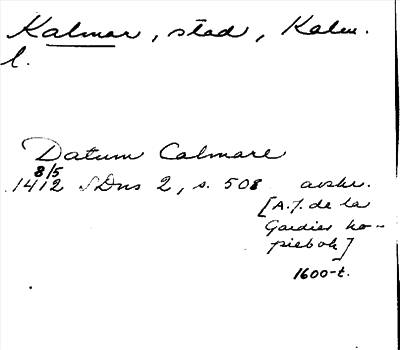 Kalmar, stad, Kalm.
l.
Datum Calmarl
8/5
1412 SDns 2, s. 508 avskr.
[A.J. de la
Gardies ko-
piebok]
1600-t.